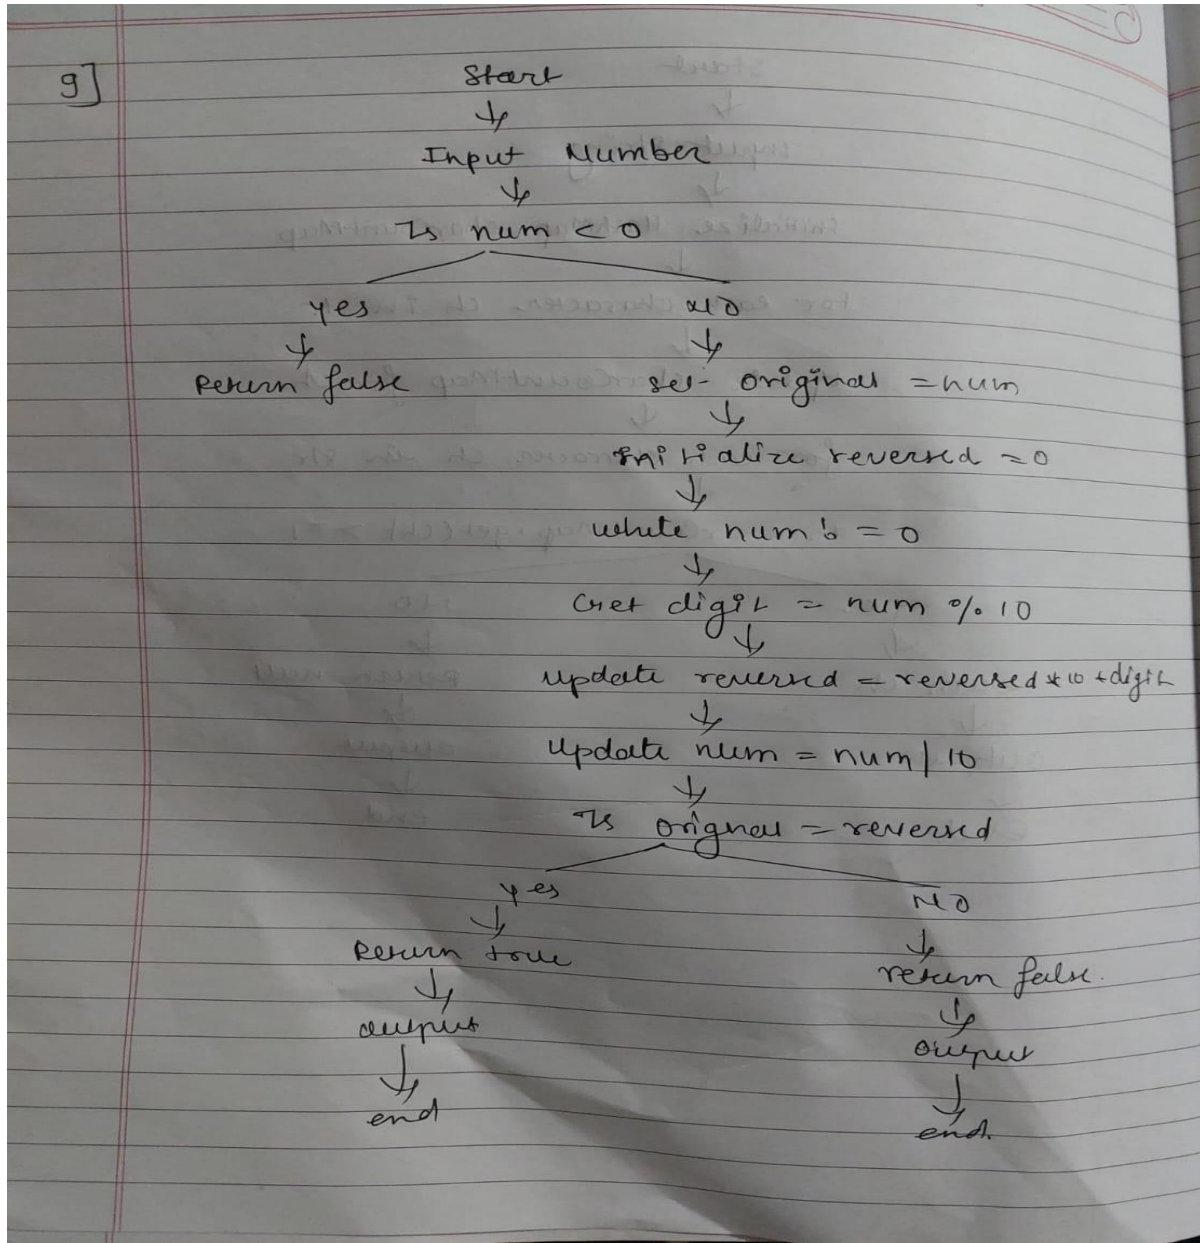 9]
Start
Input Number
Is num < 0
yes NO
Return false set original = num
Initialize reversed = 0
while num != 0
Get digit = num % 10
update reversed = reversed * 10 + digit
update num = num / 10
Is orignal = reversed
yes NO
Return true return false.
output output
end end.